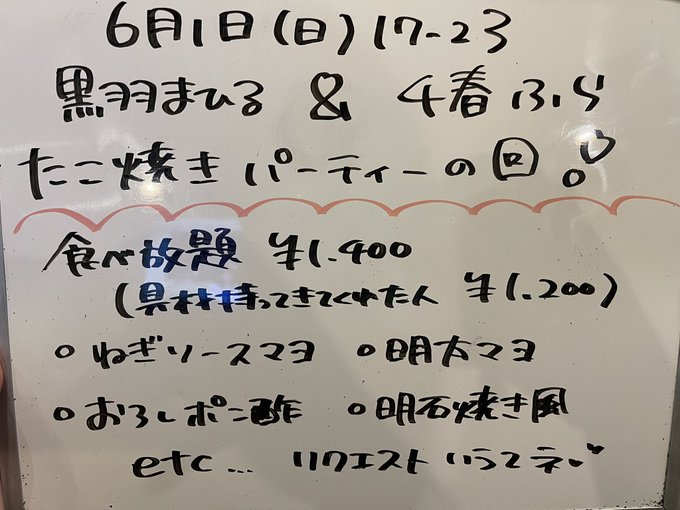 6月1日(日)17-23
黒羽まひる & 4春ふら
たこ焼きパーティーの回♡。
食べ放題 ¥1.400
(具材持ってきてくれた人 ¥1.200)
○ ねぎソースマヨ ○ 明太マヨ
○ おろしポン酢 ○ 明石焼き風
etc... リクエスト いってネ♥